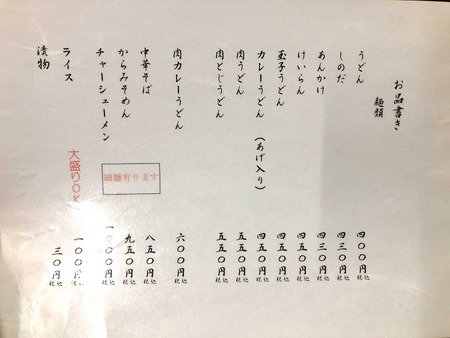 お品書き
麺類
うどん 四〇〇円税込
しのだ 四三〇円税込
あんかけ 四三〇円税込
けいらん 四五〇円税込
玉子うどん 四五〇円税込
カレーうどん (あげ入り) 四五〇円税込
肉うどん 五五〇円税込
肉とじうどん 五五〇円税込
肉カレーうどん 六〇〇円税込
中華そば 八五〇円税込
からみそめん 九五〇円税込
チャーシューメン 一〇〇〇円税込
細麺有ります
ライス 一〇〇円税込
大盛りOK
漬物 三〇円税込